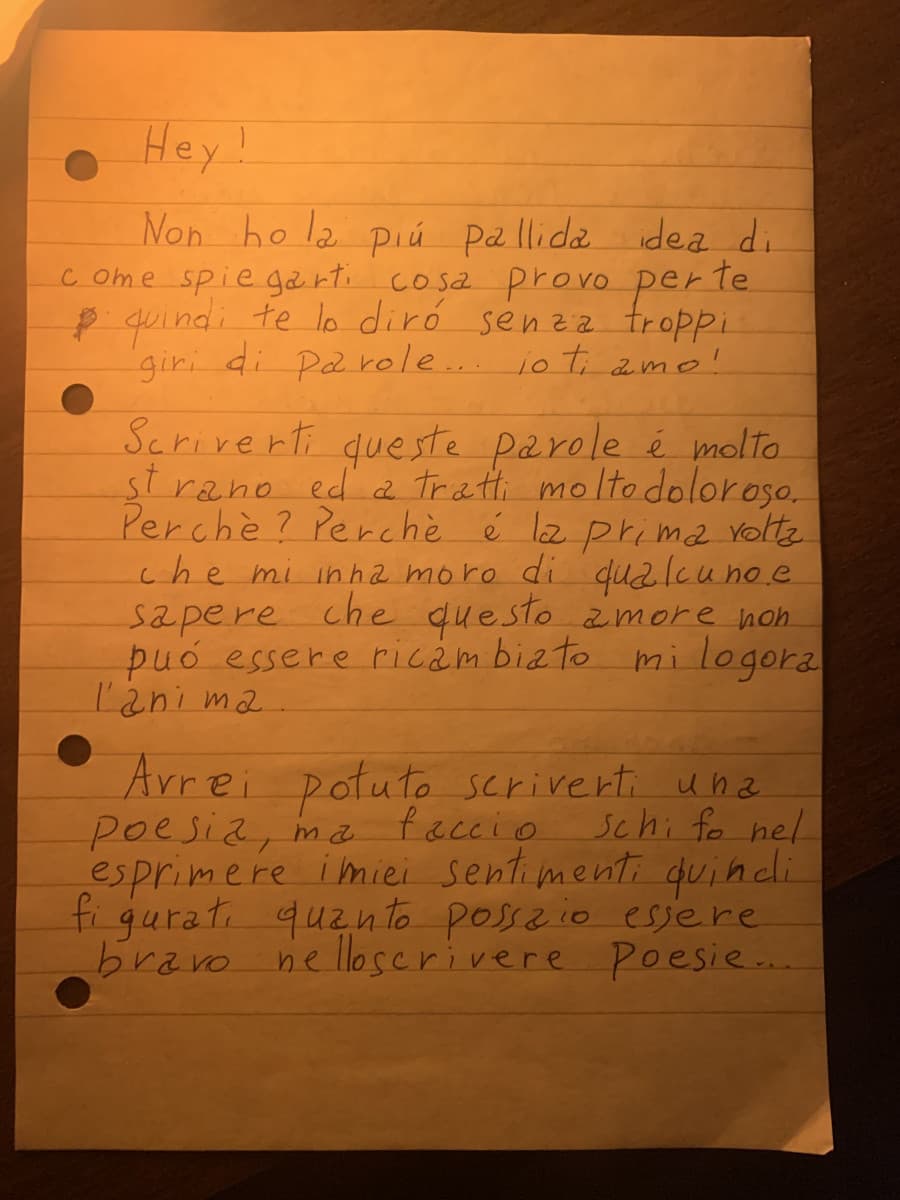 Hey!
Non ho la piú pallida idea di
come spiegarti cosa provo per te
quindi te lo diró senza troppi
giri di parole... io ti amo!
Scriverti queste parole é molto
strano ed a tratti molto doloroso.
Perchè? Perchè é la prima volta
che mi innamoro di qualcuno e
sapere che questo amore non
puó essere ricambiato mi logora
l'anima.
Avrei potuto scriverti una
poesia, ma faccio schifo nel
esprimere i miei sentimenti quindi
figurati quanto possa io essere
bravo nello scrivere poesie...